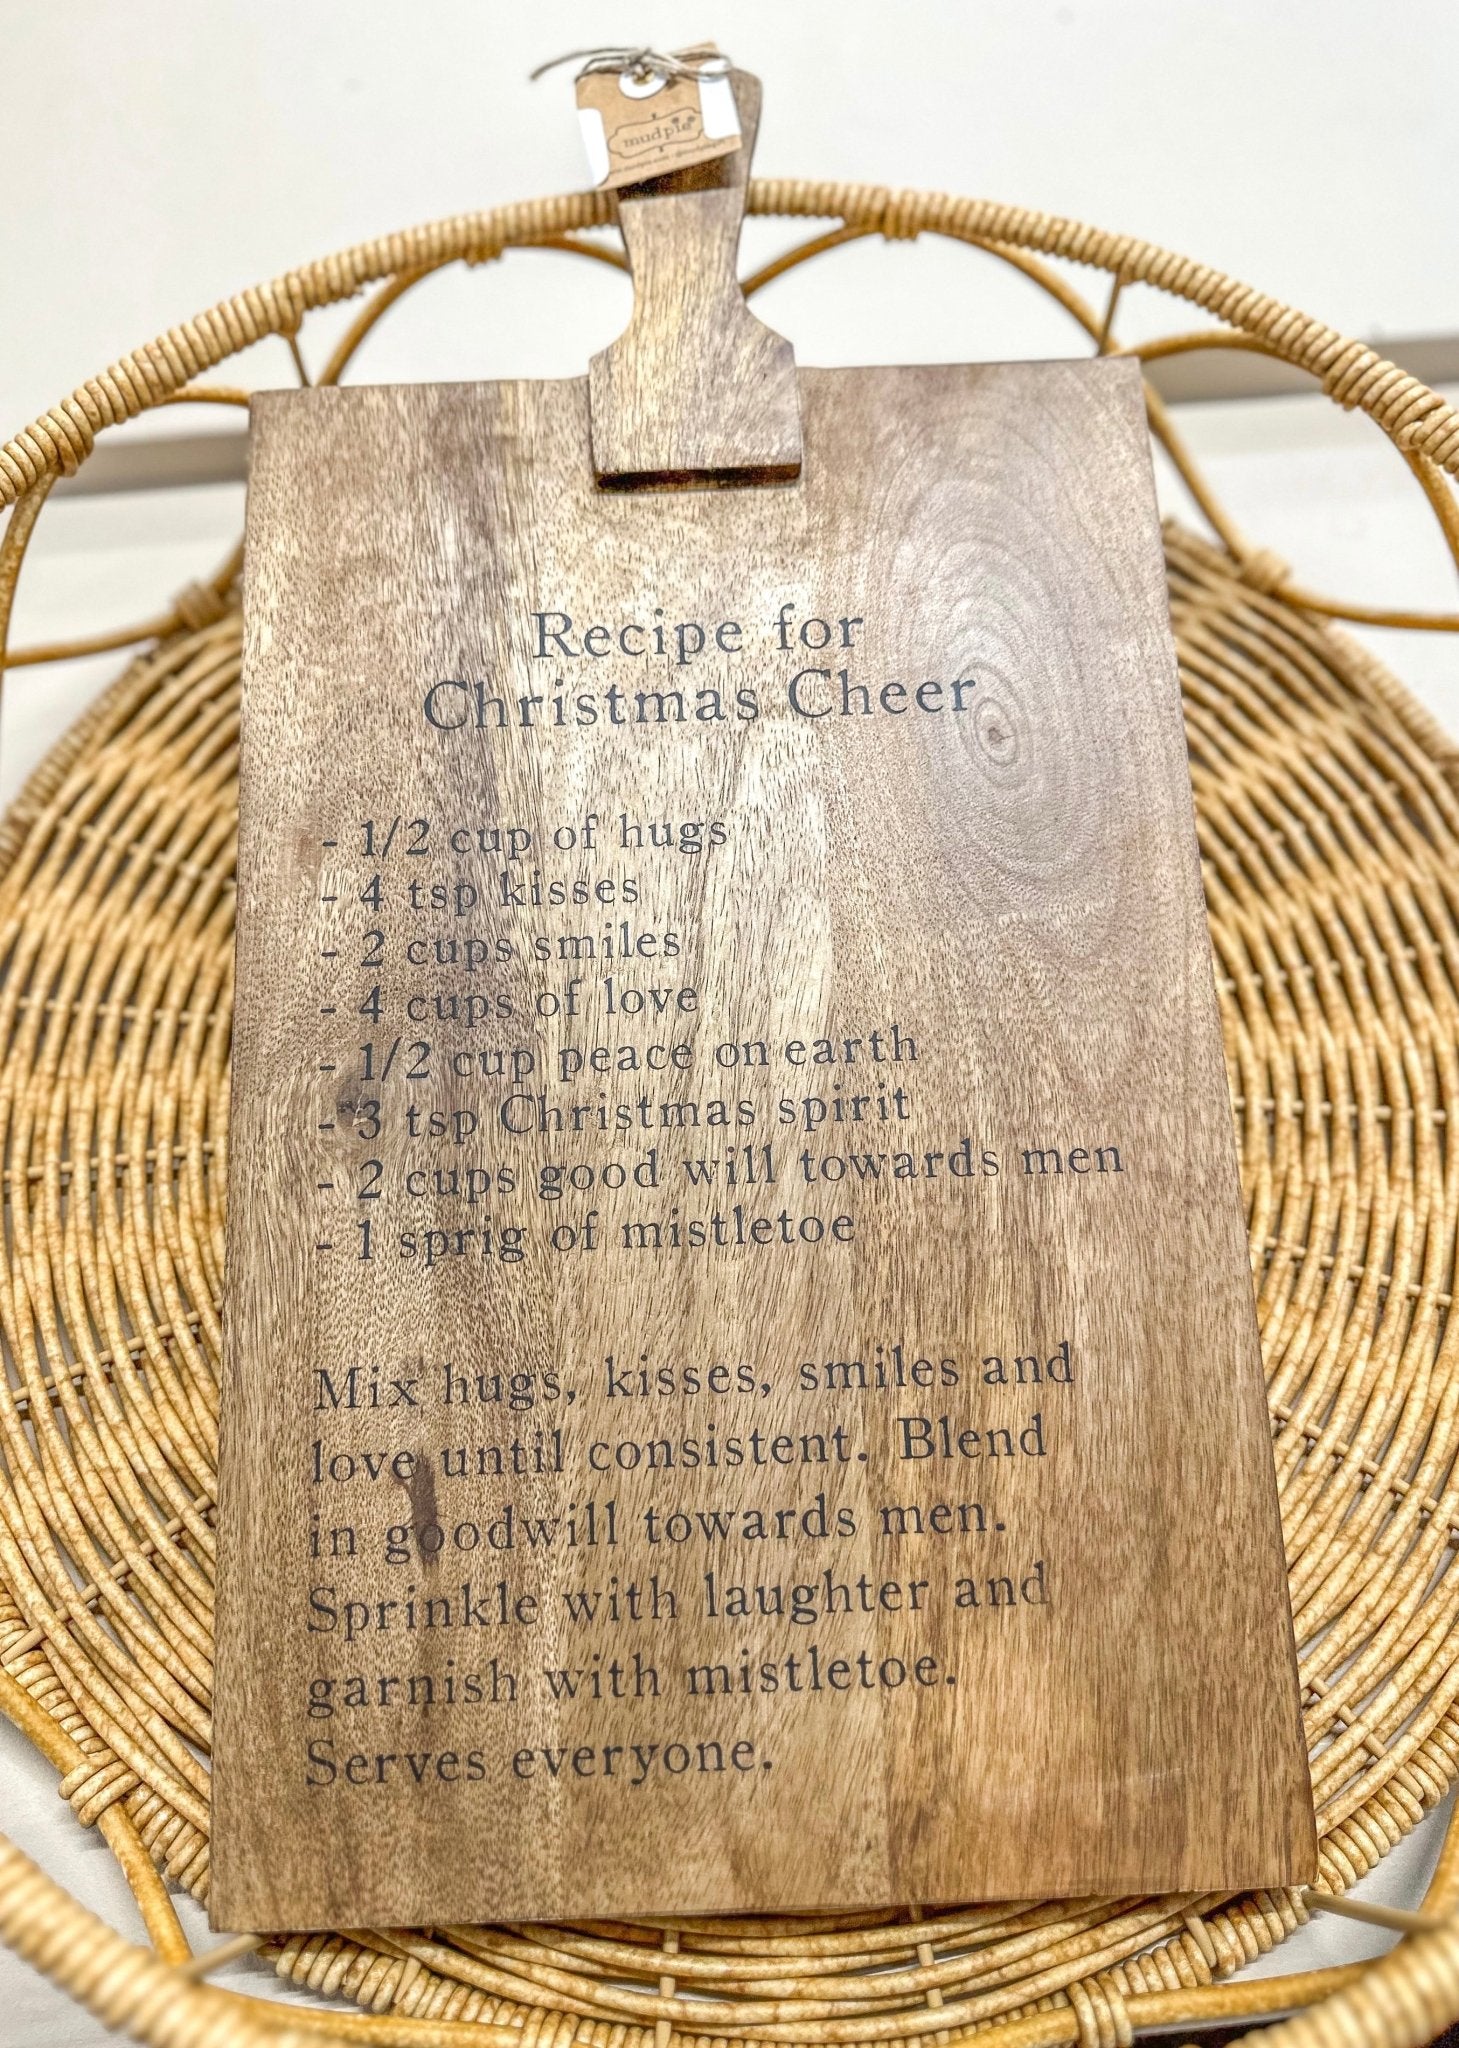 mudpie
Recipe for
Christmas Cheer
- 1/2 cup of hugs
- 4 tsp kisses
- 2 cups smiles
- 4 cups of love
- 1/2 cup peace on earth
- 3 tsp Christmas spirit
- 2 cups good will towards men
- 1 sprig of mistletoe
Mix hugs, kisses, smiles and
love until consistent. Blend
in goodwill towards men.
Sprinkle with laughter and
garnish with mistletoe.
Serves everyone.